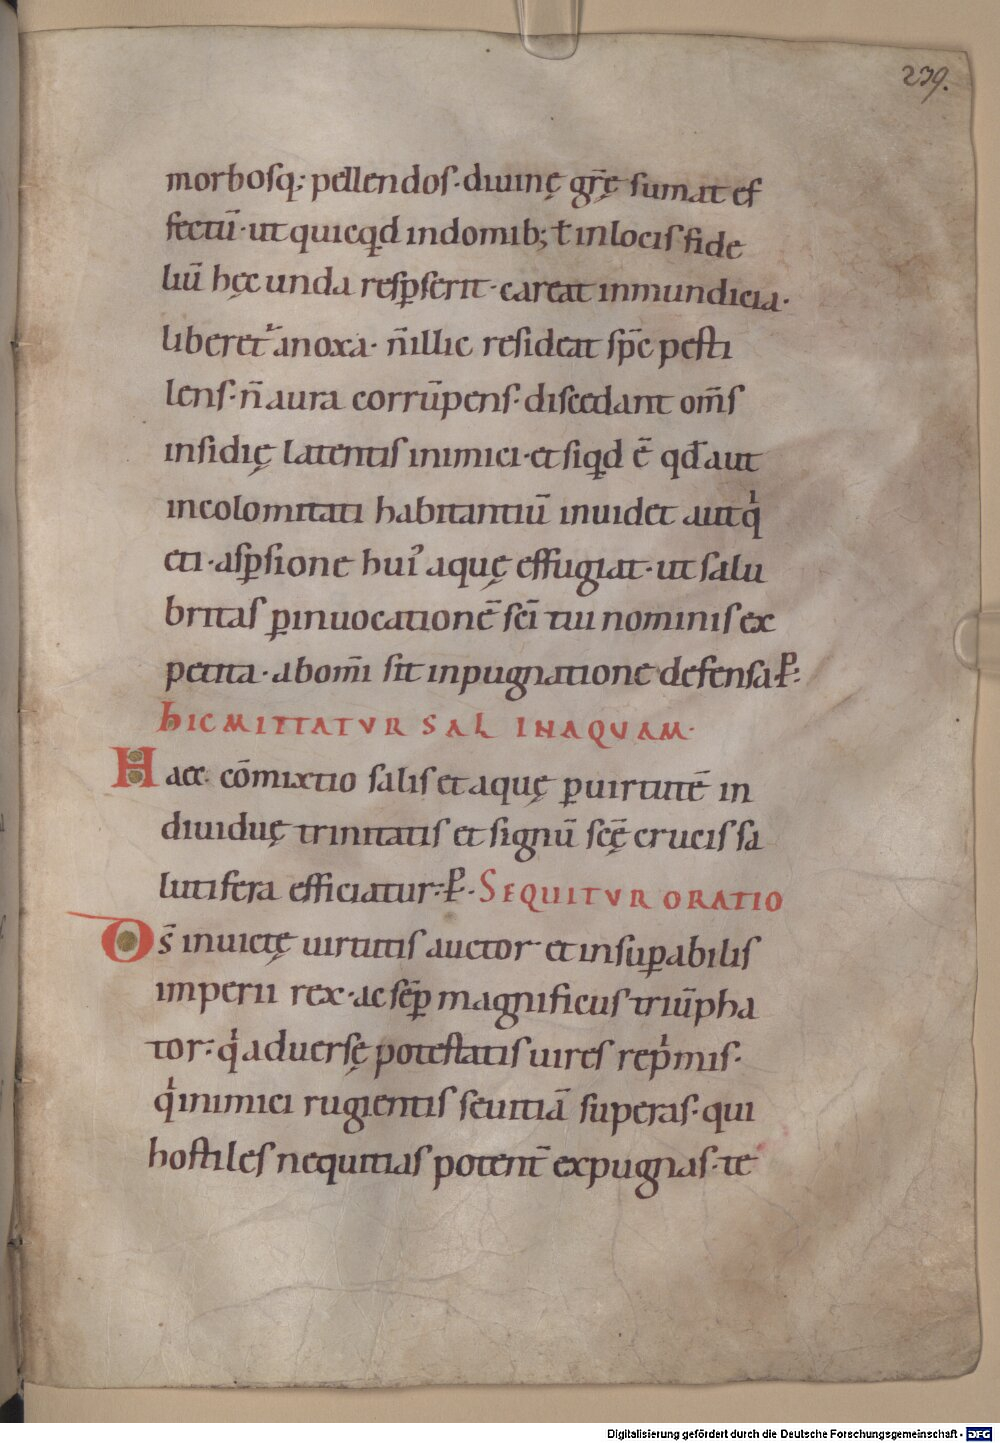 239.
morbosq; pellendos· diuinę gr̄ę sumat ef
fectū· ut quicqđ indomib; ł inlocis fide
liū hęc unda resꝑserit· careat inmundicia·
liberet᷑ anoxa· n̄illic resideat sp̄c pesti
lens· n̄ aura corrūpens· discedant om̄s
insidię latentis inimici· et siqđ ē qđ aut
incolomitati habitantiū inuidet aut qͥ
eti· asꝑsione huiꝰ aquę effugiat· ut salu
britas ꝑinuocationē sc̄i tui nominis ex
petita· abom̄i sit inpugnatione defensa· P̱:
hIC MITTATVR SAL INAQVAM·
Haec cōmixtio salis et aquę ꝑuirtutē in
diuiduę trinitatis et signū sc̄ę crucis sa
lutifera efficiatur: P̱· SEQVITVR ORATIO
Ds̄ inuictę uirtutis auctor et insuꝑabilis
imperii rex· ac sēꝑ magnificus triūpha
tor: qͥ aduersę potestatis uires repͥmis·
qͥ inimici rugientis seuitiā superas· qui
hostiles nequitias potent̄ expugnas· te
Digitalisierung gefördert durch die Deutsche Forschungsgemeinschaft - DFG